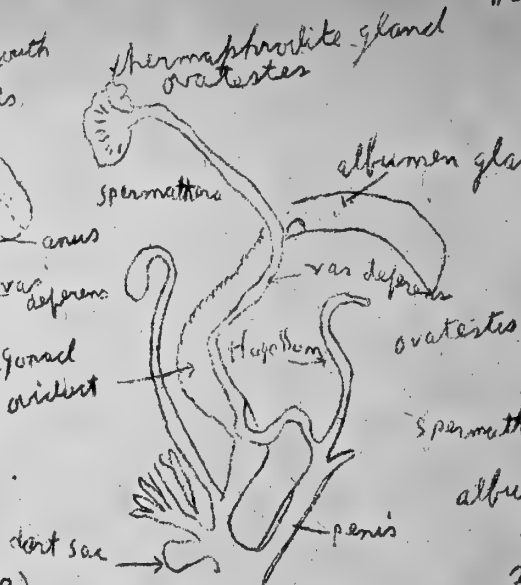 outh
hermaphrodite gland
ovatestes
is
albumen gla
spermathara
anus
vas
deferens
vas deferens
ovatestis
flagellum
gonad
oviduct
spermath
albu
dart sac
penis